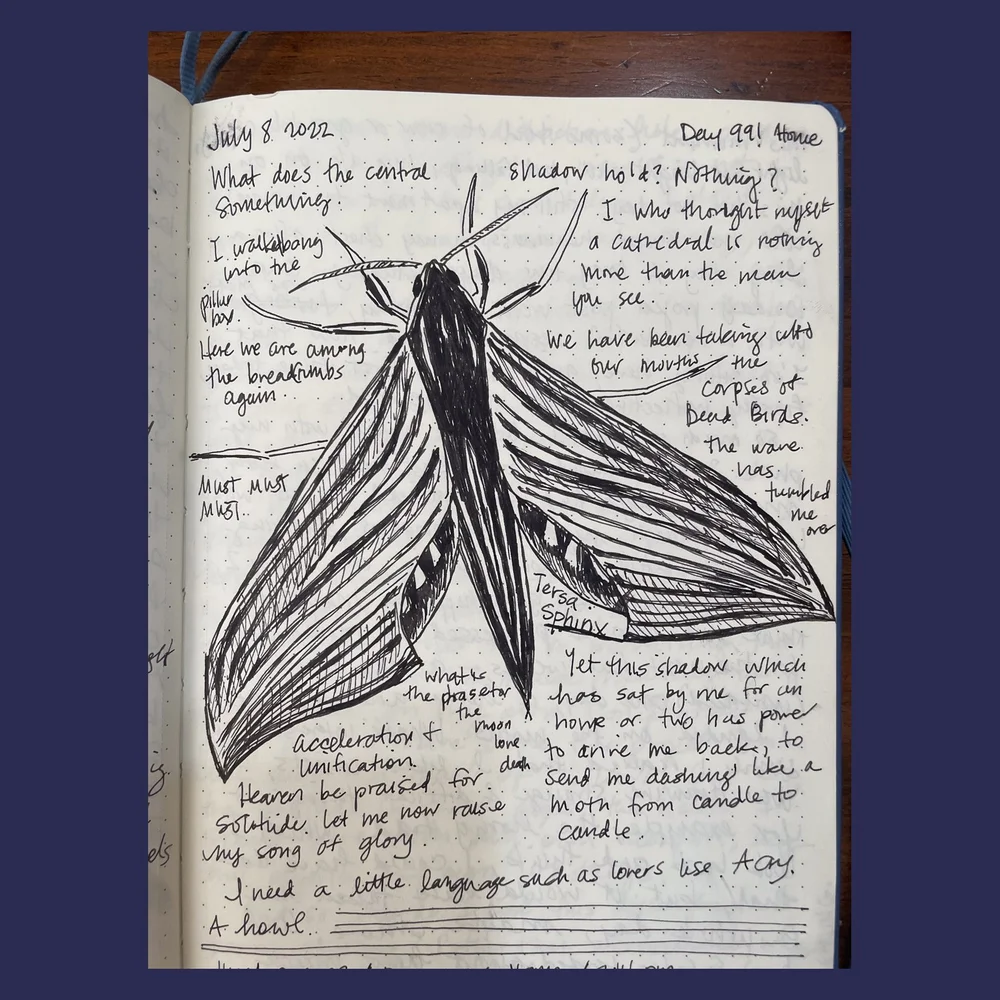 July 8 2022
Day 991 Home
What does the central shadow hold? Nothing?
Something.
I walk bang
into the
pillar
box.
Here we are among
the breadcrumbs
again.
Must Must
Must.
I who thought myself
a cathedral is nothing
more than the man
you see.
We have been taking into
our mouths the
corpses of
Dead Birds.
the wave
has
tumbled
me
over
Tersa
Sphinx
What is
the phrase for
the
moon
love
death
acceleration &
unification.
Heaven be praised for
solitude. let me now raise
my song of glory.
Yet this shadow which
has sat by me for an
hour or two has power
to drive me back, to
send me dashing like a
moth from candle to
candle.
I need a little language such as lovers use. A cry.
A howl.